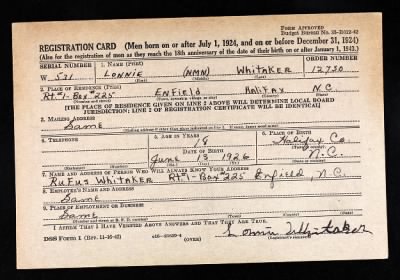 Form Approved
Budget Bureau No. 33-R012-42
REGISTRATION CARD (Men born on or after July 1, 1924, and on or before December 31, 1924)
(Also for the registration of men as they reach the 18th anniversary of the date of their birth on or after January 1, 1943.)
SERIAL NUMBER 1. NAME (Print) ORDER NUMBER
W. 531 LONNIE (NMN) WHITAKER 12750
(First) (Middle) (Last)
2. PLACE OF RESIDENCE (Print)
Rt#1-Box 225 ENFIELD HALIFAX N.C.
(Number and street) (Town, township, village or city) (County) (State)
[THE PLACE OF RESIDENCE GIVEN ON LINE 2 ABOVE WILL DETERMINE LOCAL BOARD
JURISDICTION; LINE 2 OF REGISTRATION CERTIFICATE WILL BE IDENTICAL]
3. MAILING ADDRESS
Same
4. TELEPHONE 5. AGE IN YEARS 6. PLACE OF BIRTH
18 Halifax Co.
DATE OF BIRTH
June 13 1926 N.C.
(Mo.) (Day) (Yr.)
7. NAME AND ADDRESS OF PERSON WHO WILL ALWAYS KNOW YOUR ADDRESS
RUFUS WHITAKER Rt#1-Box 225 Enfield, N.C.
8. EMPLOYER'S NAME AND ADDRESS
Same
9. PLACE OF EMPLOYMENT OR BUSINESS
Same
I AFFIRM THAT I HAVE VERIFIED ABOVE ANSWERS AND THAT THEY ARE TRUE.
DSS Form 1 (Rev. 11-16-42) (OVER) Lonnie Whitaker
(Registrant's signature)